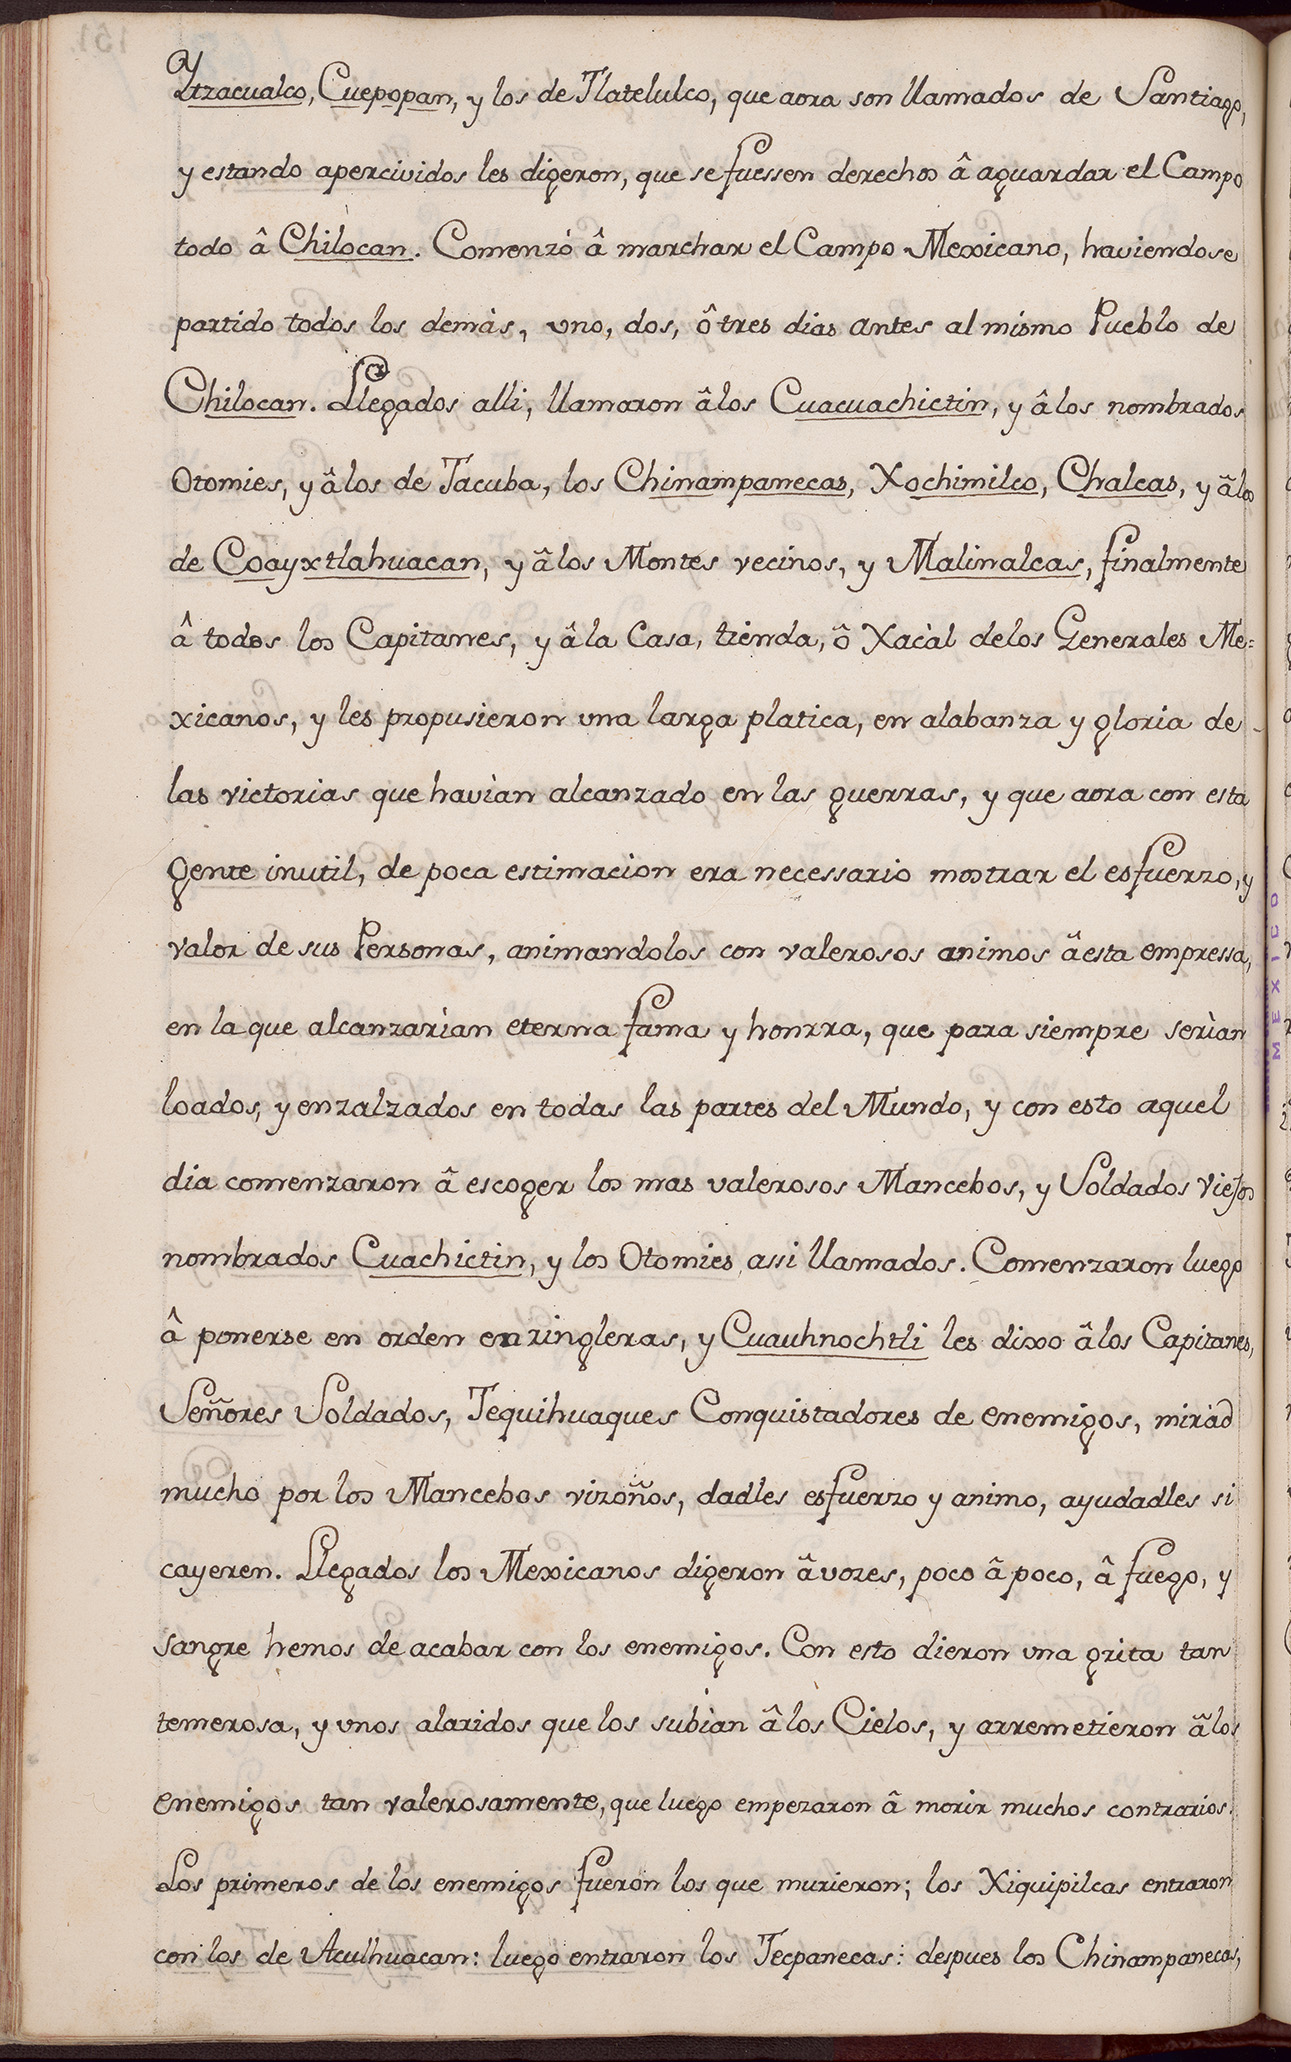 Ytzacualco, Cuepopan, y los de Tlatelulco, que aora son llamados de Santiago,
y estando apercividos les digeron, que se fuessen derechos â aguardar el Campo
todo â Chilocan. Comenzó â marchar el Campo Mexicano, haviendose
partido todos los demàs, uno, dos, ô tres dias antes al mismo Pueblo de
Chilocan. Llegados alli, llamaron â los Cuacuachictin, y â los nombrados
Otomies, y â los de Tacuba, los Chinampanecas, Xochimilco, Chalcas, y â los
de Coayxtlahuacan, y â los Montes vecinos, y Malinalcas, finalmente
â todos los Capitanes, y â la Casa, tienda, ô Xacàl delos Generales Me=
xicanos, y les propusieron una larga platica, en alabanza y gloria de
las victorias que havìan alcanzado en las guerras, y que aora con esta
gente inutil, de poca estimacion era necessario mostrar el esfuerzo, y
valor de sus Personas, animandolos con valerosos animos â esta empressa,
en la que alcanzarìan eterna fama y honrra, que para siempre serìan
loados, y enzalzados en todas las partes del Mundo, y con esto aquel
dia comenzaron â escoger los mas valerosos Mancebos, y Soldados Viejos
nombrados Cuachictin, y los Otomies assi llamados. Comenzaron luego
â ponerse en orden en ringleras, y Cuauhnochtli les dixo â los Capitanes,
Señores Soldados, Tequihuaques Conquistadores de enemigos, mirad
mucho por los Mancebos vizoños, dadles esfuerzo y animo, ayudadles si
cayeren. Llegados los Mexicanos digeron â vozes, poco â poco, â fuego, y
sangre hemos de acabar con los enemigos. Con esto dieron una grita tan
temerosa, y unos alaridos que los subìan â los Cielos, y arremetieron â los
enemigos tan valerosamente, que luego empezaron â morir muchos contrarios.
Los primeros de los enemigos fueron los que murieron; los Xiquipilcas entraron
con los de Aculhuacan: luego entraron los Tecpanecas: despues los Chinampanecas,
MEXICO